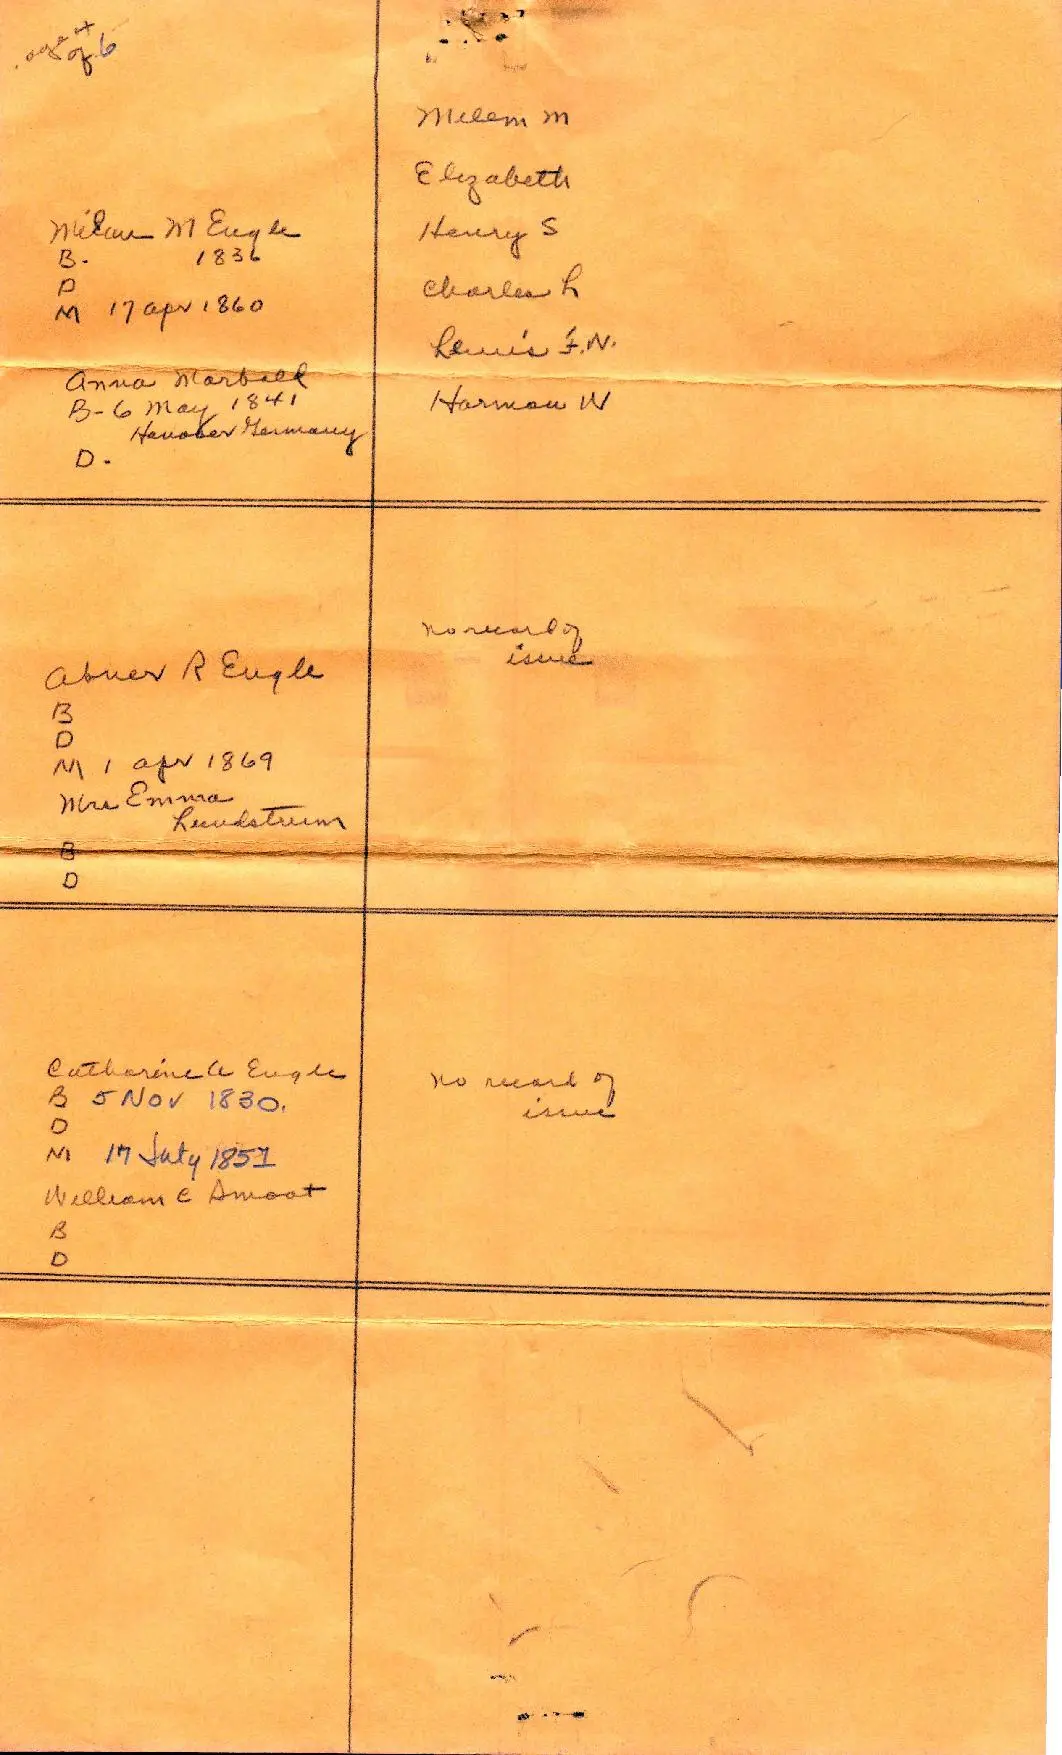 of 6
Milan M Eugle
B. 1836
D
M 17 apr 1860
Anna
B- 6 May 1841
Hanover Germany
D.
Milem M
Elizabeth
Henry S
Charles L
Lewis F.N.
Harmon W
Abner R Eugle
B
D
M 1 apr 1869
Mrs Emma
Lundstrum
B
D
no record of
issue
Catharine A Eugle
B 5 Nov 1830.
D
M 17 July 1851
William C Smoot
B
D
no record of
issue